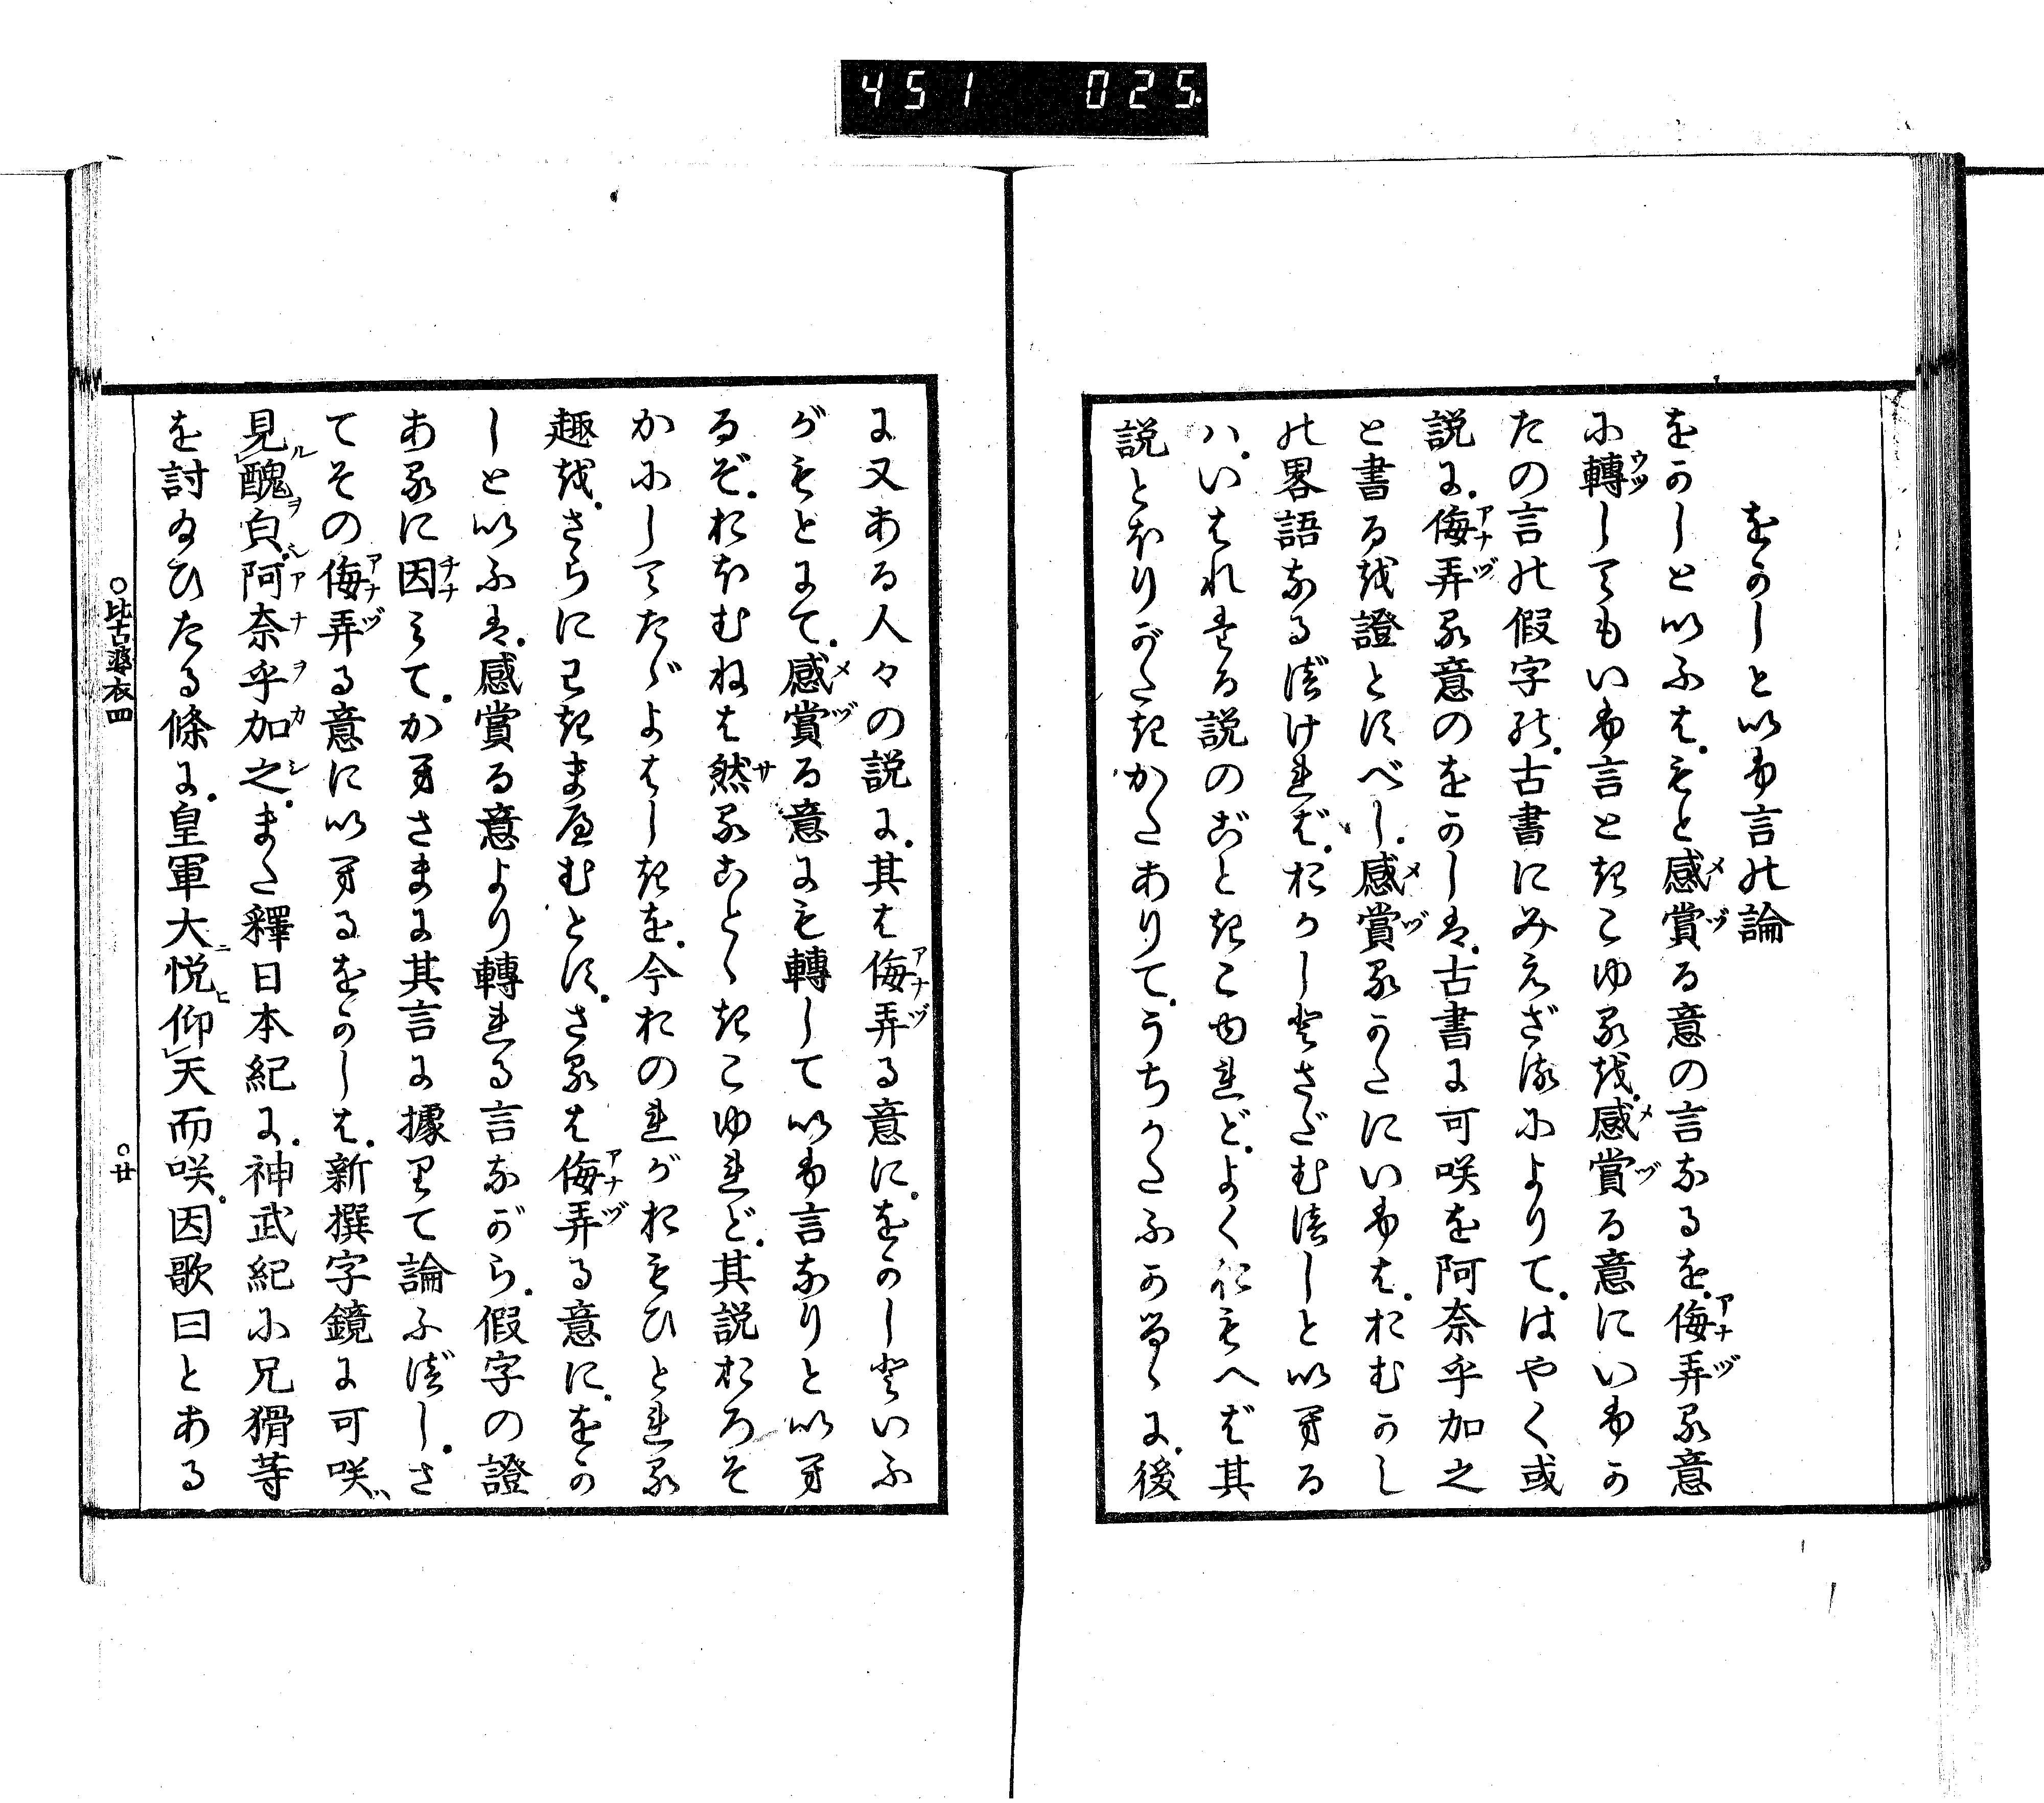 451 025
をかしと以ふ言の論
をかしと以ふは。もと感賞る意の言なるを。侮弄る意
に轉してもいふ言ときこゆるを。感賞る意にいふか
たの言の假字の。古書にみえざるによりて。はやく或
説に。侮弄る意のをかしは。古書に可咲を阿奈乎加之
と書るを證とすべし。感賞るかたにいふは。おむかし
の畧語なるべければ。おかしとさだむべしと以へる
ハ。いはれたる説のごときこゆれど。よくおもへば其
説とほりがたきかたありて。うちかたふかるゝに。後
に又ある人々の説に。其は侮弄る意に。をかしといふ
がもとにて。感賞る意にも轉して以ふ言なりと以へ
るぞ。おほむねは然ることゝきこゆれど。其説おろそ
かにしてたゞよはしきを。今おのれがおもひとれる
趣を。さらにわきまへむとす。さるは侮弄る意に。をか
しと以ふは。感賞る意より轉れる言ながら。假字の證
あるに因みて。かへさまに其言に據りて論ふべし。さ
てその侮弄る意に以へるをかしは。新撰字鏡に可咲。
見醜皃。阿奈乎加之。また釋日本紀に。神武紀に兄猾等
を討給ひたる條に。皇軍大悦仰天而咲。因歌曰とある
○比古婆衣四 ○廿